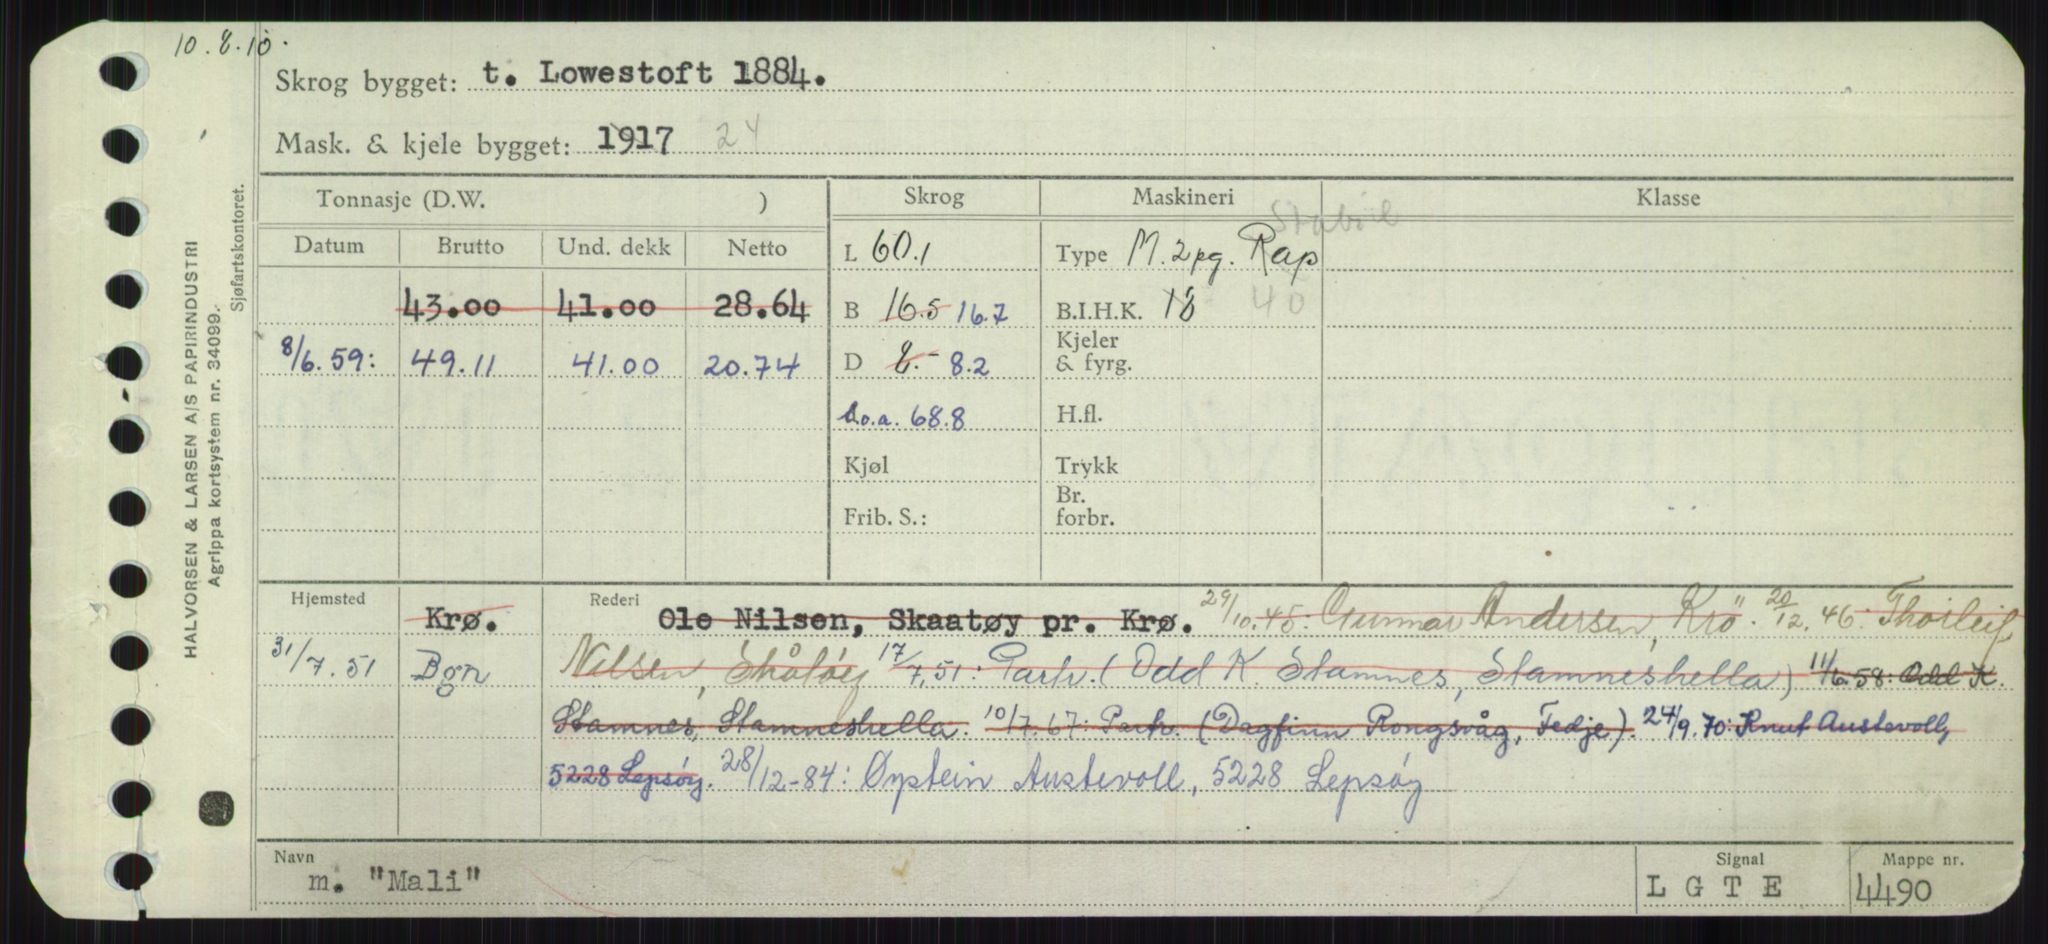 10.8.10.
Skrog bygget: t. Lowestoft 1884.
Mask. & kjele bygget: 1917 24
HALVORSEN & LARSEN A/S PAPIRINDUSTRI
Agrippa kortsystem nr. 34099.
Sjøfartskontoret.
Tonnasje (D.W. ) Skrog Maskineri Klasse
Stabil
Datum Brutto Und. dekk Netto L 60.1 Type M. 2pg. Rap
43.00 41.00 28.64 B 16.5 16.7 B.I.H.K. 18 40
8/6.59: 49.11 41.00 20.74 D 8.- 8.2 Kjeler & fyrg.
L.o.a. 68.8 H.fl.
Kjøl Trykk
Frib. S.: Br. forbr.
Hjemsted Rederi
Krø. Ole Nilsen, Skaatøy pr. Krø. 29/10.45: Gunnar Andersen, Krö. 20/12.46: Thorleif
31/7.51 Bgn Nilsen, Skåtøy 17/7.51: Parh. (Odd K. Stamnes, Stamneshella) 11/6.58: Odd K.
Stamnes, Stamneshella. 10/7.67: Parh. (Dagfinn Rongsvåg, Fedje). 24/9.70: Knut Austevoll,
5228 Lepsøy. 28/12-84: Øystein Austevoll, 5228 Lepsøy
Navn Signal Mappe nr.
m. "Mali" LGTE 4490